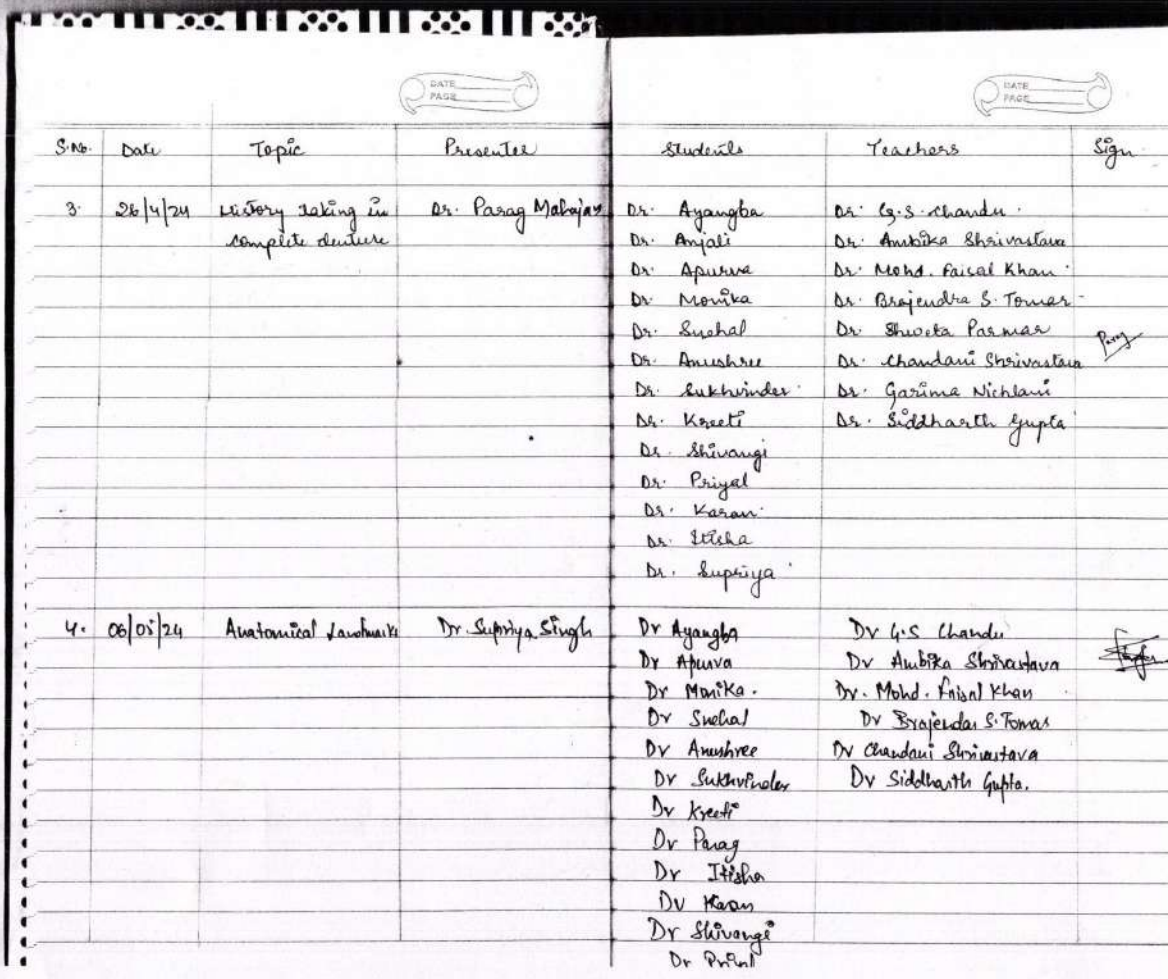 DATE
PAGE
DATE
PAGE
S.No. Date Topic Presenter Students Teachers Sign
3. 26/4/24 History taking in Dr. Parag Mahajan Dr. Ayangba Dr. G.S. Chandu.
complete denture Dr. Anjali Dr. Ambika Shrivastava
Dr. Apurva Dr. Mohd. Faisal Khan
Dr. Monika Dr. Brajendra S. Tomar
Dr. Snehal Dr. Shweta Parmar
Parag
Dr. Anushree Dr. Chandani Shrivastava
Dr. Sukhvinder Dr. Garima Nichlani
Dr. Kreeti Dr. Siddharth Gupta
Dr. Shivangi
Dr. Priyal
Dr. Karan
Dr. Itisha
Dr. Supriya
4. 06/05/24 Anatomical Landmarks Dr. Supriya Singh Dr Ayangba Dr G.S Chandu
Dr Apurva Dr Ambika Shrivastava
Dr Monika. Dr. Mohd. Faisal Khan
Dr Snehal Dr Brajendar S. Tomar
Dr Anushree Dr Chandani Shrivastava
Dr Sukhvinder Dr Siddharth Gupta.
Dr Kreeti
Dr Parag
Dr Itisha
Dr Karan
Dr Shivangi
Dr